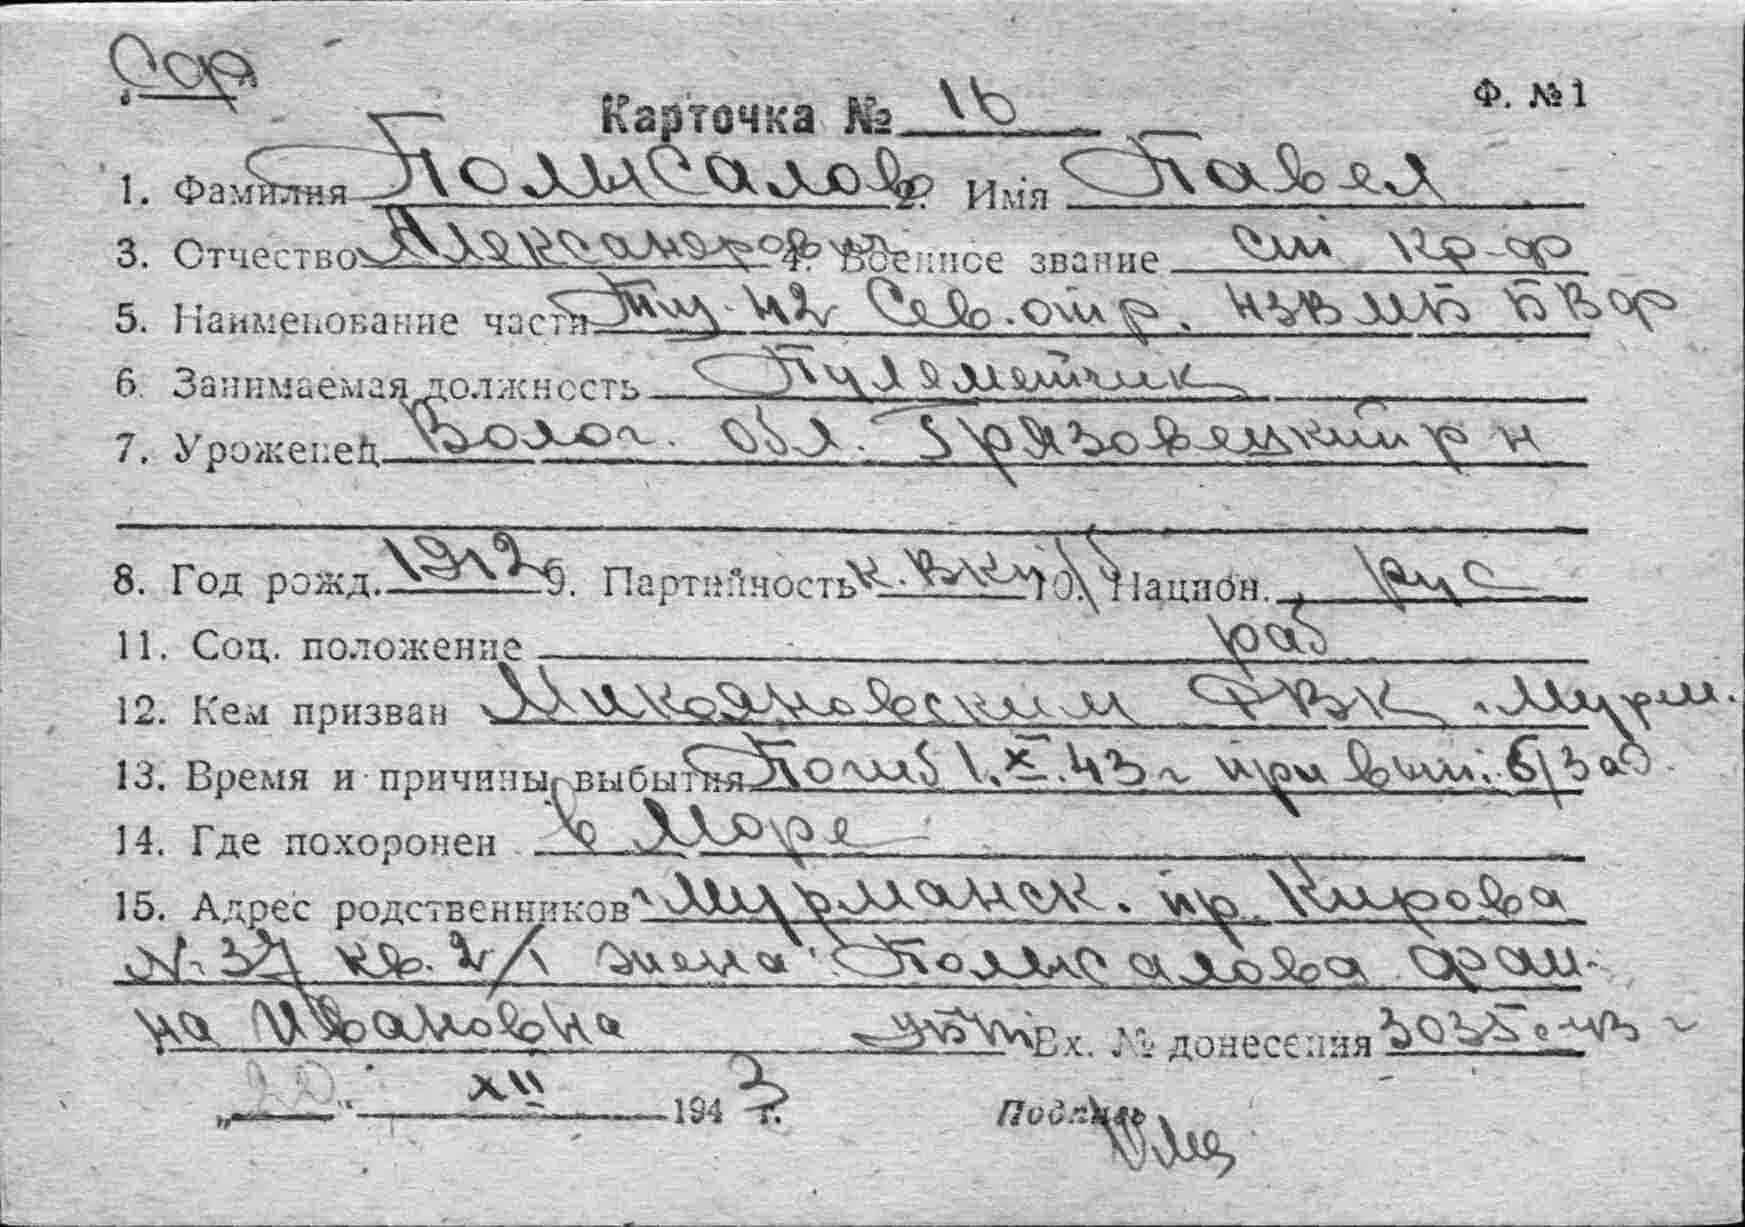 Карточка № 16 Ф. № 1
1. Фамилия Полысалов 2. Имя Павел
3. Отчество Александрович 4. Военное звание ст кр-ф
5. Наименование части Тщ. 42 Сев. отр. НЗВМБ БВФ
6. Занимаемая должность Пулеметчик
7. Уроженец Волог. обл. Грязовецкий р н
8. Год рожд. 1912 9. Партийность к. ВКП(б) 10. Национ. рус
11. Соц. положение раб
12. Кем призван Микояновским РВК Мурм.
13. Время и причины выбытия Погиб 1.X.43 г при вып. б/зад.
14. Где похоронен в море
15. Адрес родственников Мурманск. пр. Кирова
№ 37 кв. 2/1 жена Полысалова Фаи-
на Ивановна Вх. № донесения 3035с-43 г
„20“ XII 1943 г. Подпись